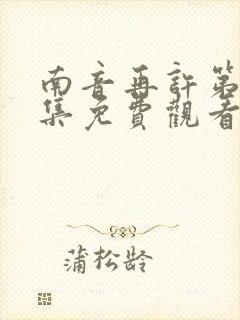 南音再許第
集免費觀看
蒲松龄